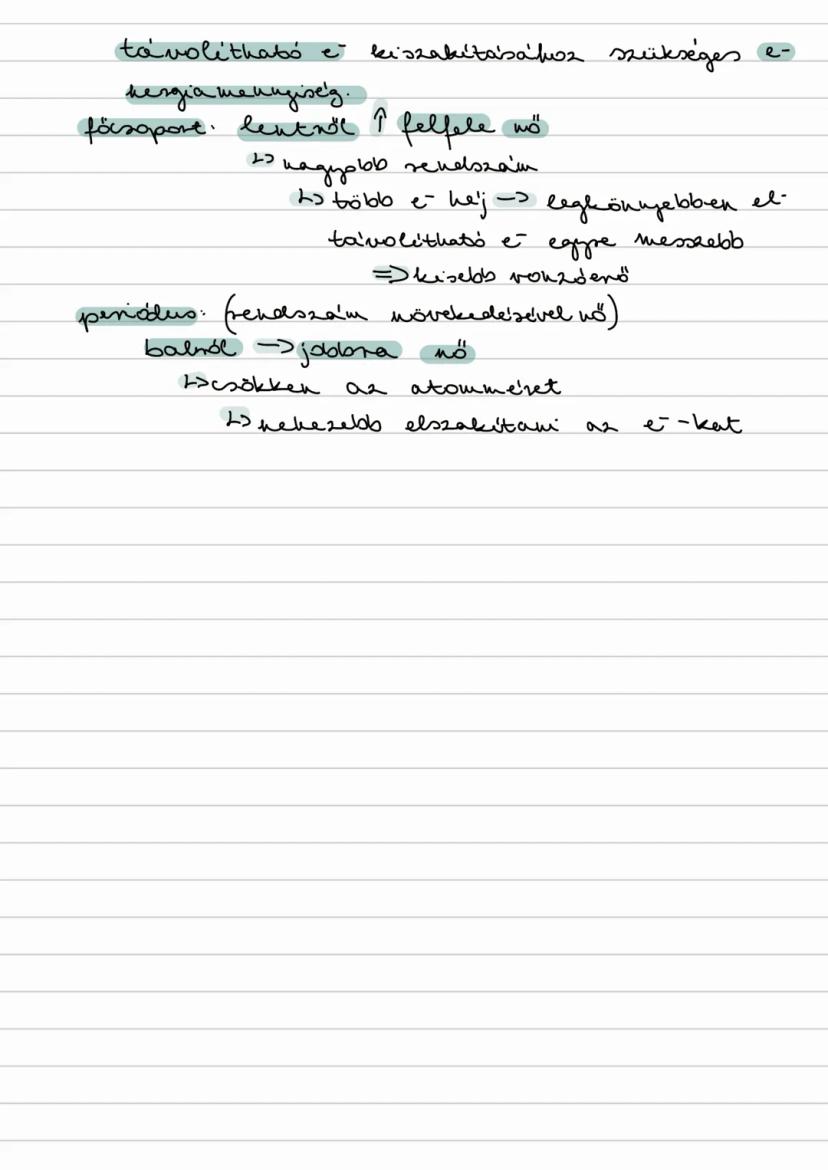 távolítható e⁻ kiszakításához szükséges e-
nergiamennyiség.
főcsoport: lentről ↑ felfele nő
↳ nagyobb rendszám
↳ több e⁻ héj → legkönnyebben el-
távolítható e⁻ egyre messzebb
⇒ kisebb vonzóerő
periódus: (rendszám növekedésével nő)
balról → jobbra nő
↳ csökken az atomméret
↳ nehezebb elszakítani az e⁻-kat